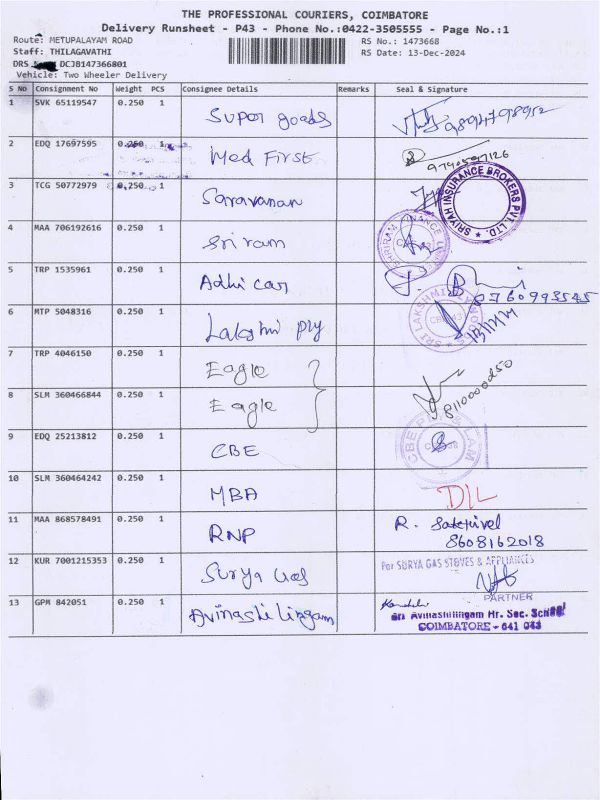 THE PROFESSIONAL COURIERS, COIMBATORE
Delivery Runsheet - P43 - Phone No.:0422-3505555 - Page No.:1
Route: METUPALAYAM ROAD
RS No.: 1473668
Staff: THILAGAVATHI
RS Date: 13-Dec-2024
DRS DCJB147366801
Vehicle: Two Wheeler Delivery
S No Consignment No Weight PCS Consignee Details Remarks Seal & Signature
1 SVK 65119547 0.250 1 Super goods 9894798952
2 EDQ 17697595 0.250 1 Med First 9790597126
3 TCG 50772979 0.250 1 Saravanan
SRIYAH INSURANCE BROKERS PVT. LTD.
4 MAA 706192616 0.250 1 Sri ram
5 TRP 1535961 0.250 1 Adhi car
6 MTP 5048316 0.250 1 Lakshmi ply
7 TRP 4046150 0.250 1 Eagle
8 SLM 360466844 0.250 1 Eagle
9 EDQ 25213812 0.250 1 CBE
10 SLM 360464242 0.250 1 MBA D/L
11 MAA 868578491 0.250 1 RNP R. Sakthivel
8608162018
12 KUR 7001215353 0.250 1 Surya Gas For SURYA GAS STOVES & APPLIANCES
PARTNER
13 GPM 842051 0.250 1 Avinashilingam
Sri Avinashilingam Hr. Sec. School
COIMBATORE - 641 043